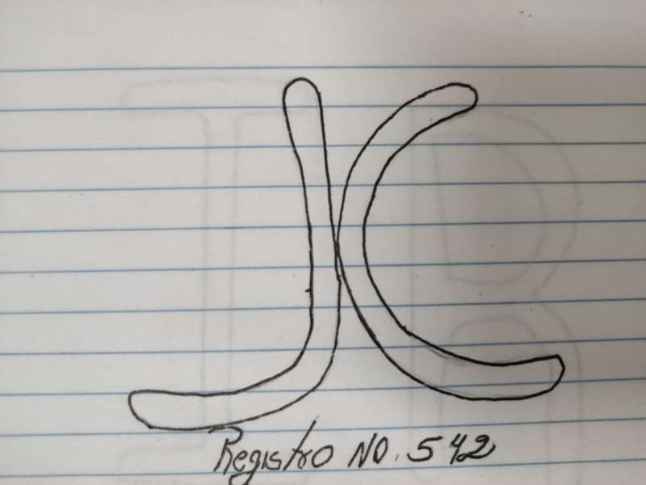 JC
Registro NO. 542